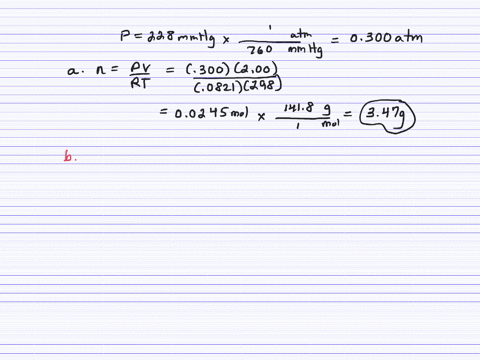 P = 228 mmHg × 1 atm / 760 mmHg = 0.300 atm
a. n = PV / RT = (.300)(2.00) / (.0821)(298)
= 0.0245 mol × 141.8 g / 1 mol = 3.47g
b.